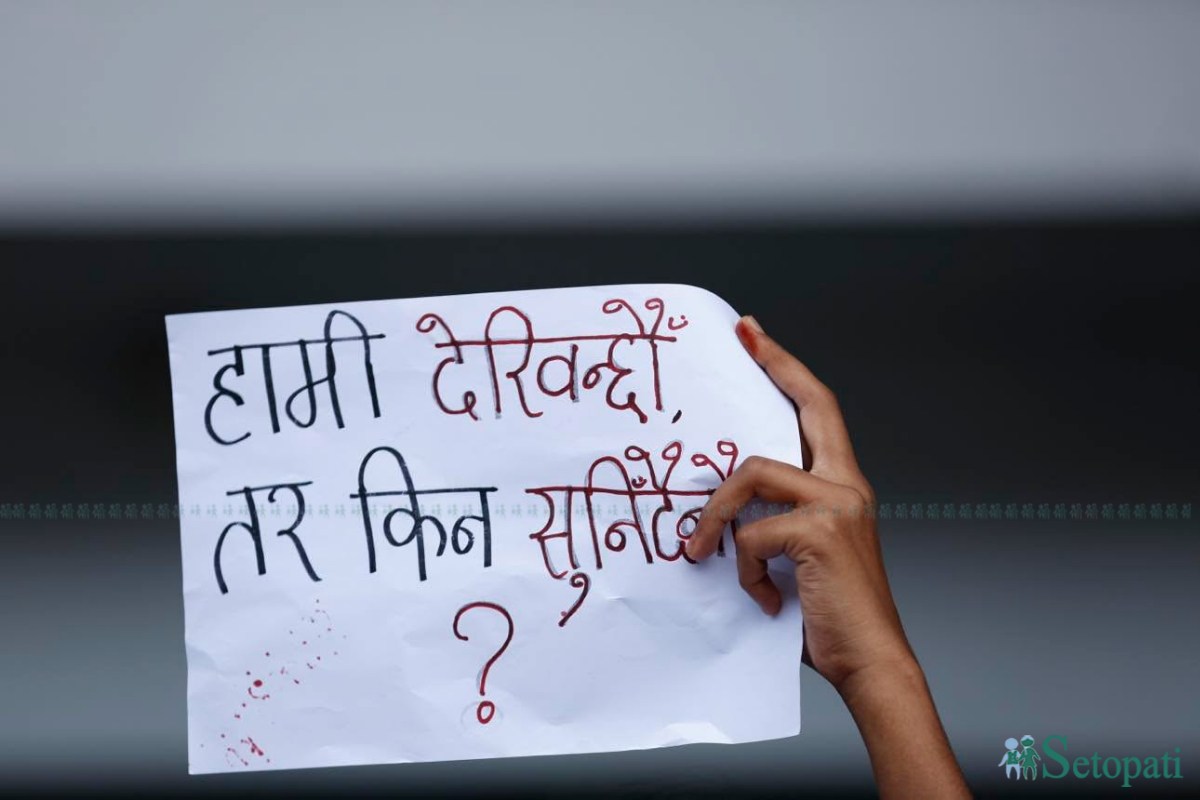 हामी देखिन्छौँ,
तर किन सुनिँदैनौ
?
Setopati